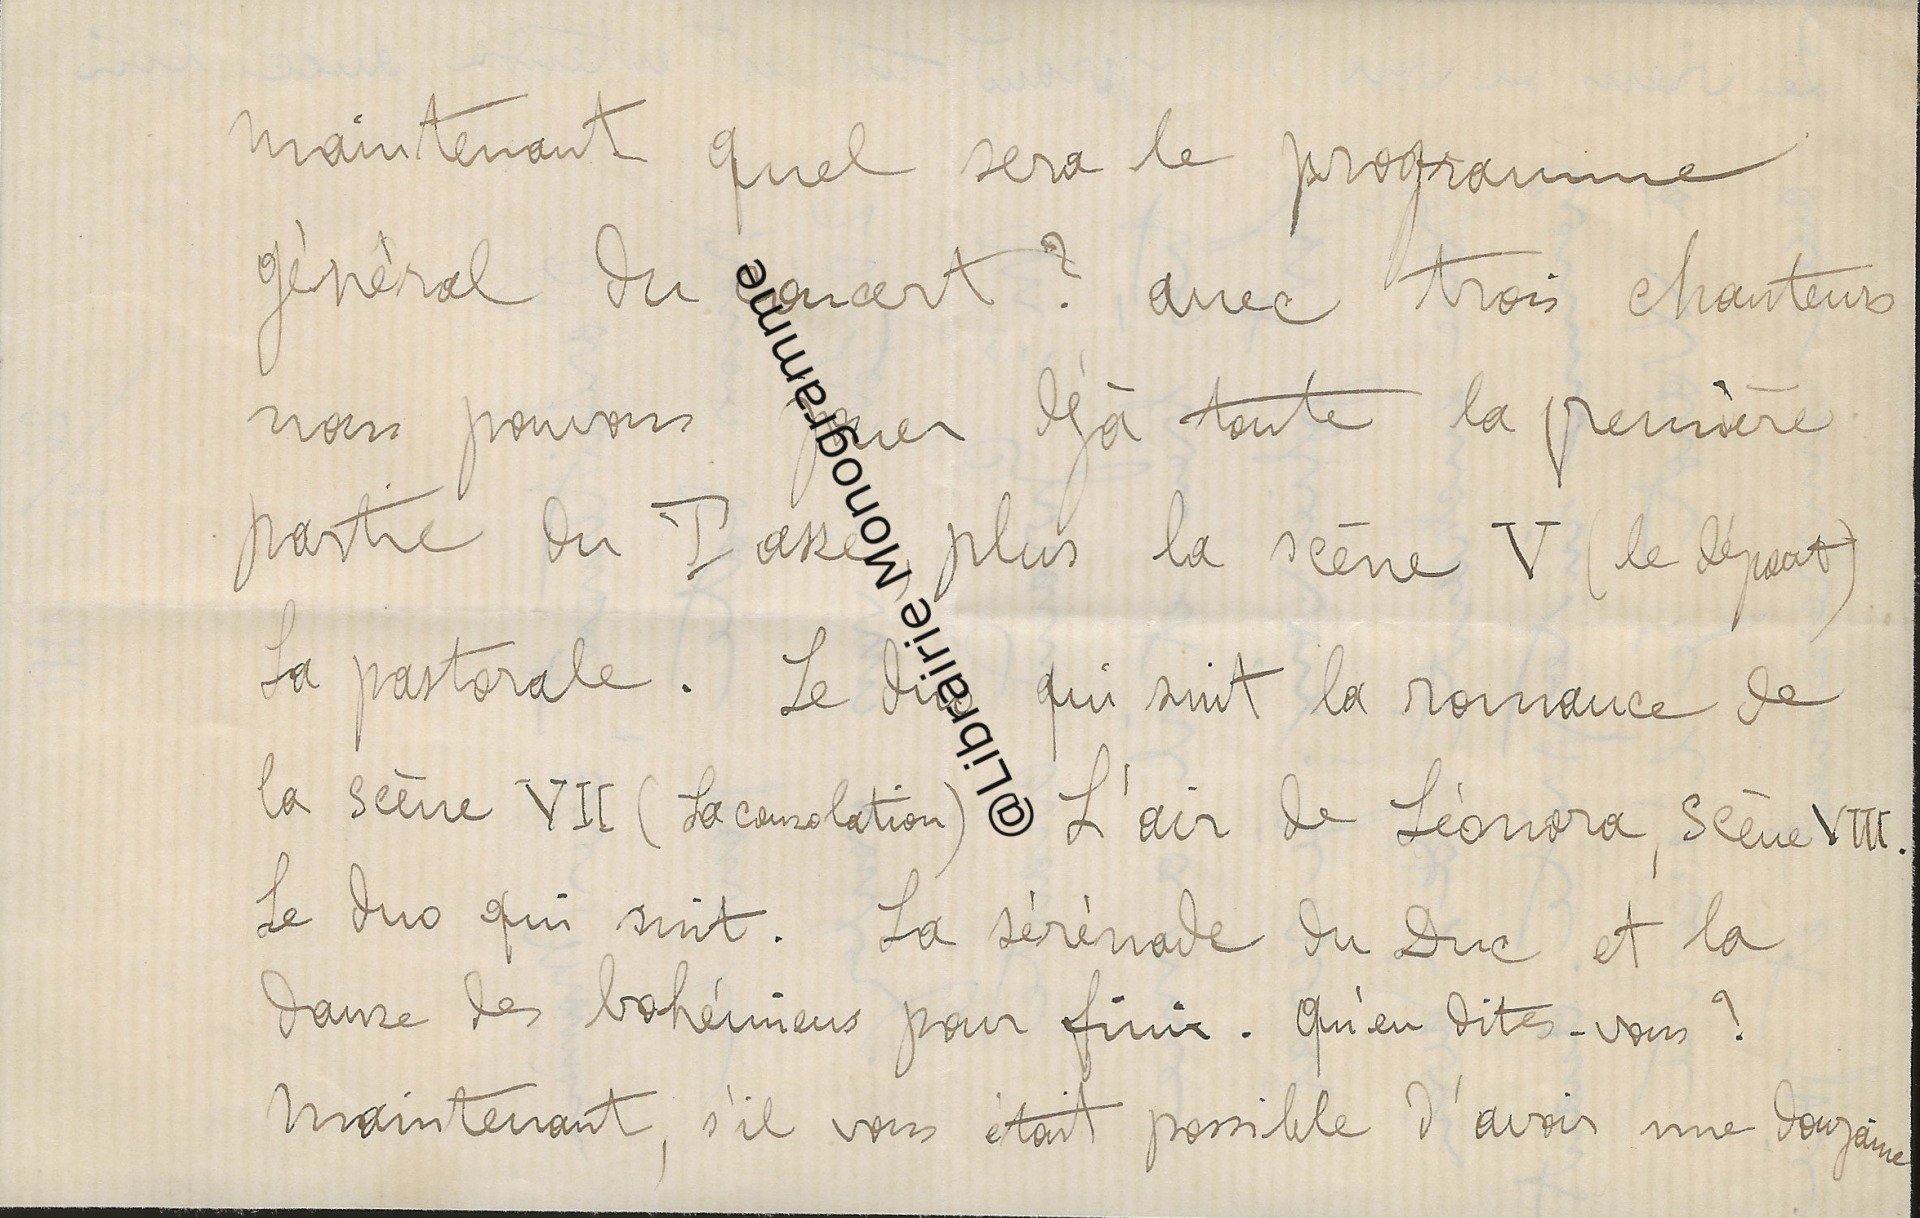 maintenant quel sera le programme
général du concert ? avec trois chanteurs
nous pouvons jouer déjà toute la première
partie du Tasse, plus la scène V (le départ)
La pastorale. Le duo qui suit la romance de
la scène VII (La consolation) L'air de Léonora, Scène VIII.
Le duo qui suit. La sérénade du Duc et la
danse des bohémiens pour finir. Qu'en dites-vous ?
Maintenant, s'il vous était possible d'avoir une douzaine
@Librairie Monogramme